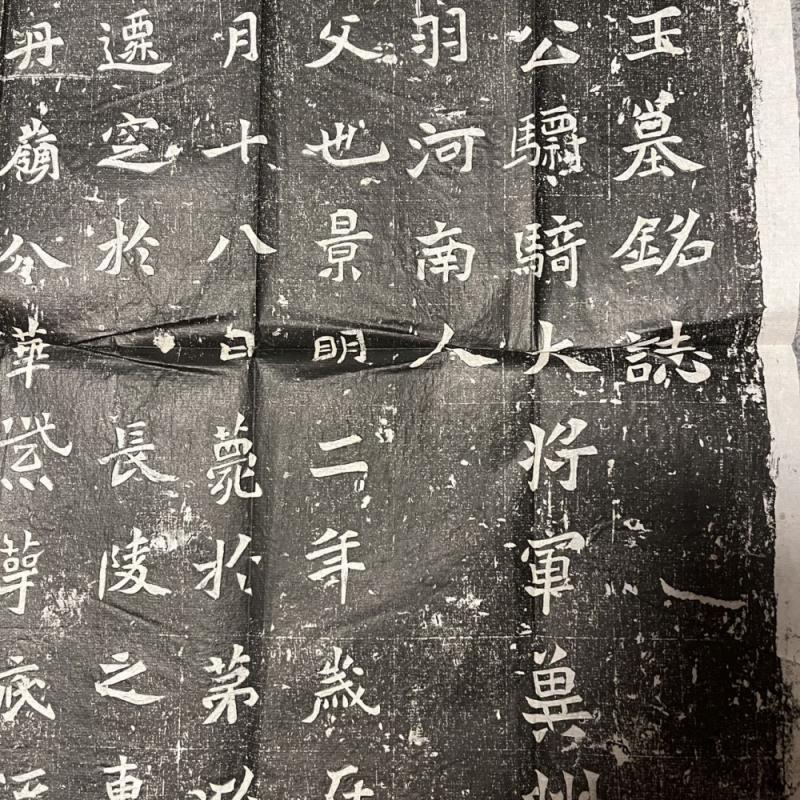 王墓銘誌
公驃騎大將軍冀州
羽河南人
父也景明二年歲在
月十八日薨於第
遷窆於長陵之東
丹嶺分華紫萼